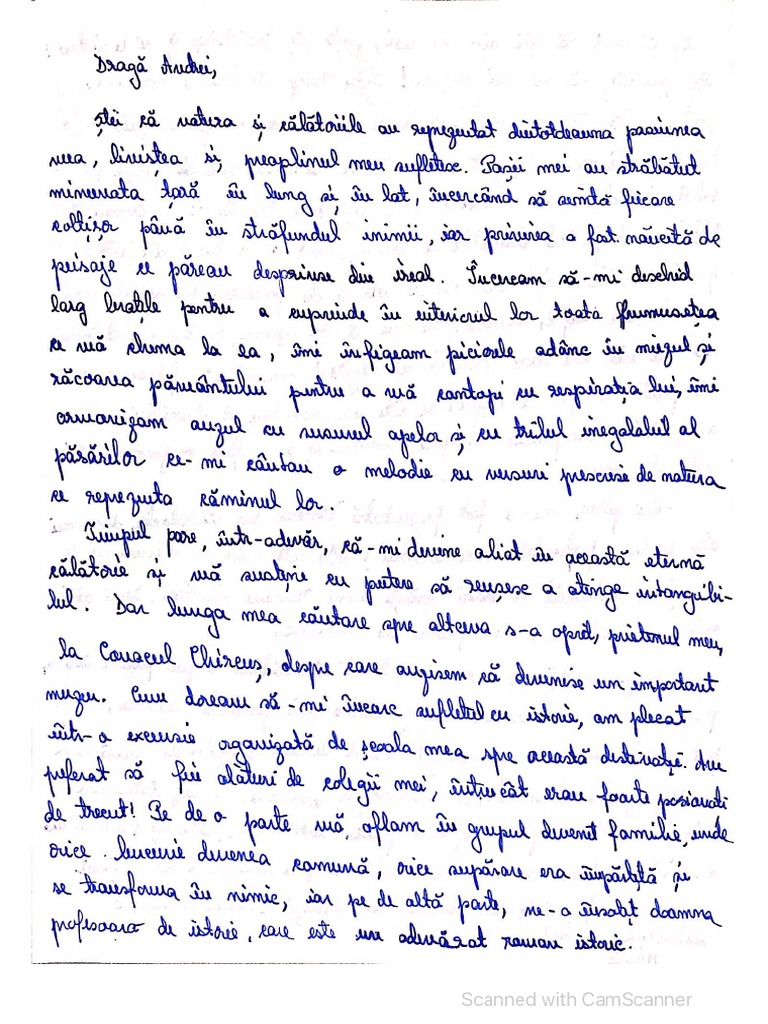 Dragă Andrei,
Știi că natura și călătoriile au reprezentat dintotdeauna pasiunea
mea, liniștea și preaplinul meu sufletesc. Pașii mei au străbătut
minunata țară în lung și în lat, încercând să simtă fiecare
colțișor până în străfundul inimii, iar privirea a fost năucită de
peisaje ce păreau desprinse din ireal. Încercam să-mi deschid
larg brațele pentru a cuprinde în interiorul lor toată frumusețea
ce mă chema la ea, îmi înfigeam piciorele adânc în miezul și
răcoarea pământului pentru a mă contopi cu respirația lui, îmi
armonizam auzul cu susurul apelor și cu trilul inegalabil al
păsărilor ce-mi cântau o melodie cu versuri prescrise de natura
ce reprezenta căminul lor.
Timpul pare, într-adevăr, că-mi devine aliat în această eternă
călătorie și mă susține cu putere să reușesc a atinge intangibi-
lul. Dar lunga mea căutare spre altceva s-a oprit, prietenul meu,
la Conacul Chireuș, despre care auzisem că devenise un important
muzeu. Cum doream să-mi încarc sufletul cu istorie, am plecat
într-o excursie organizată de școala mea spre această destinație. Am
preferat să fiu alături de colegii mei, întrucât erau foarte pasionați
de trecut! Pe de o parte mă aflam în grupul devenit familie, unde
orice bucurie devenea comună, orice supărare era împărțită și
se transforma în nimic, iar pe de altă parte, ne-a însoțit doamna
profesoara de istorie, care este un adevărat roman istoric.
Scanned with CamScanner